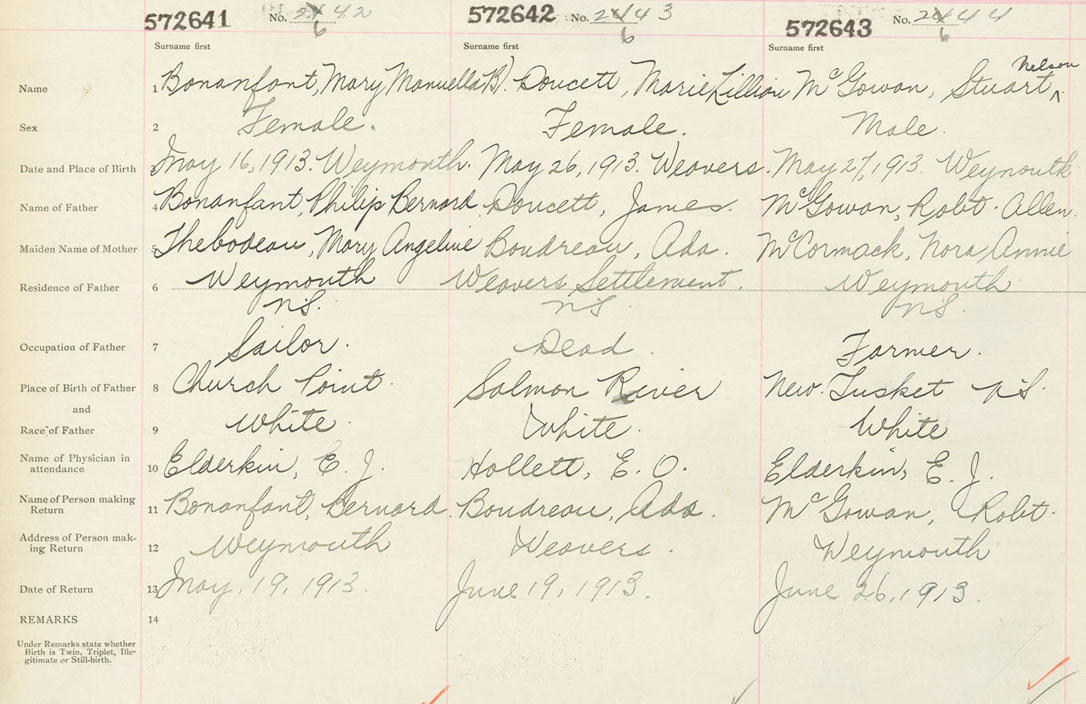 572641 No. 2442 6 572642 No. 2443 6 572643 No. 2444 6
Surname first Surname first Surname first
Name 1 Bonanfant, Mary Manuella B. Doucett, Marie Lillian McGowan, Stuart ^ Nelson
Sex 2 Female. Female. Male.
Date and Place of Birth 3 May 16, 1913. Weymouth. May 26, 1913. Weavers. May 27, 1913. Weymouth
Name of Father 4 Bonanfant, Philip Bernard Doucett, James. McGowan, Robt. Allen.
Maiden Name of Mother 5 Thebodeau, Mary Angeline Boudreau, Ada. McCormack, Nora Annie
Residence of Father 6 Weymouth Weavers Settlement. Weymouth
N.S. N.S N.S.
Occupation of Father 7 Sailor. Dead. Farmer.
Place of Birth of Father 8 Church Point. Salmon River New Tusket N.S.
and
Race of Father 9 White. White. White
Name of Physician in attendance 10 Elderkin, E. J. Hollett, E. O. Elderkin, E. J.
Name of Person making Return 11 Bonanfant, Bernard. Boudreau, Ada. McGowan, Robt.
Address of Person making Return 12 Weymouth Weavers. Weymouth
Date of Return 13 May, 19, 1913. June 19, 1913. June 26, 1913.
REMARKS 14
Under Remarks state whether
Birth is Twin, Triplet, Ille-
gitimate or Still-birth.